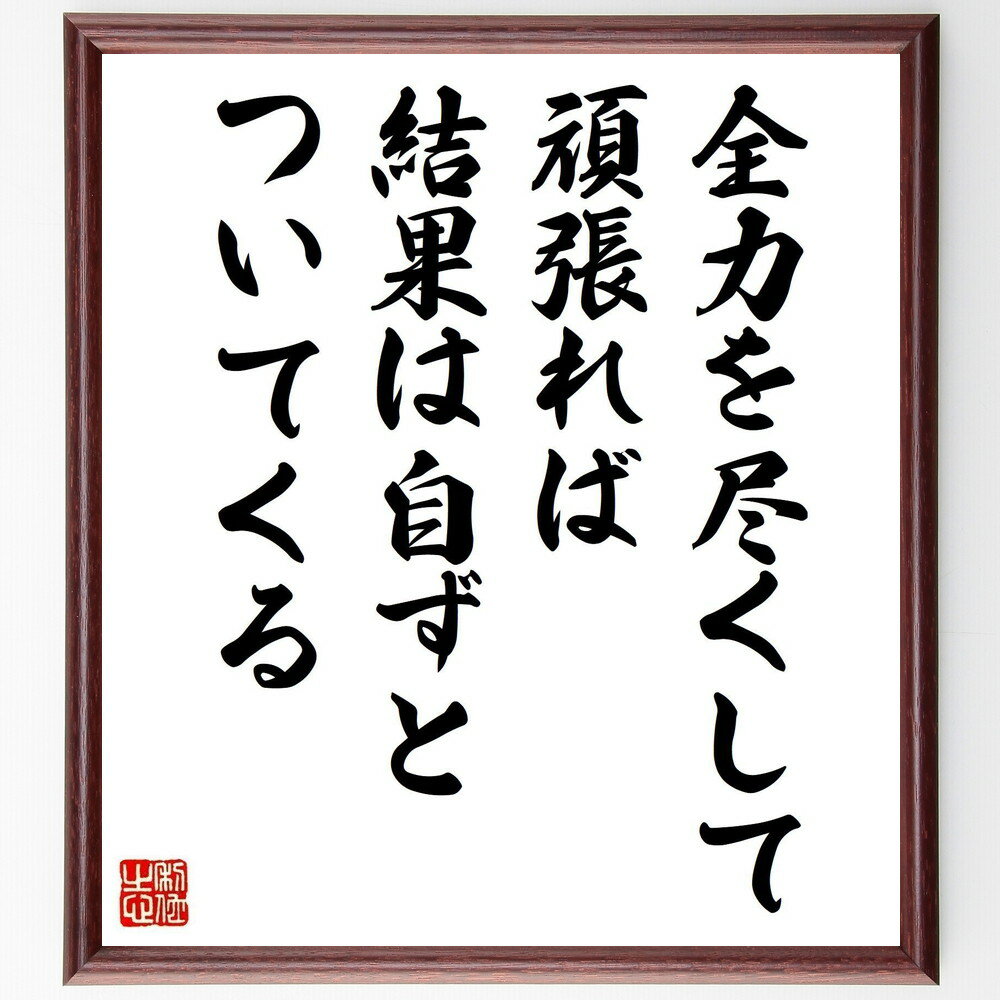 全力を尽くして
頑張れば
結果は自ずと
ついてくる